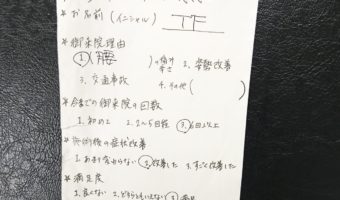 *お名前(イニシャル) T.F
*御来院理由
①(腰 )の痛み 辛さ 2、姿勢改善
3、交通事故 4、その他( )
*今までの御来院の回数
1、初めて 2、2~5回程 ③、6回以上
*施術後の症状改善
1、あまり変わらない ②、改善した 3、すごく改善した
*満足度
1、良くない 2、どちらともいえない